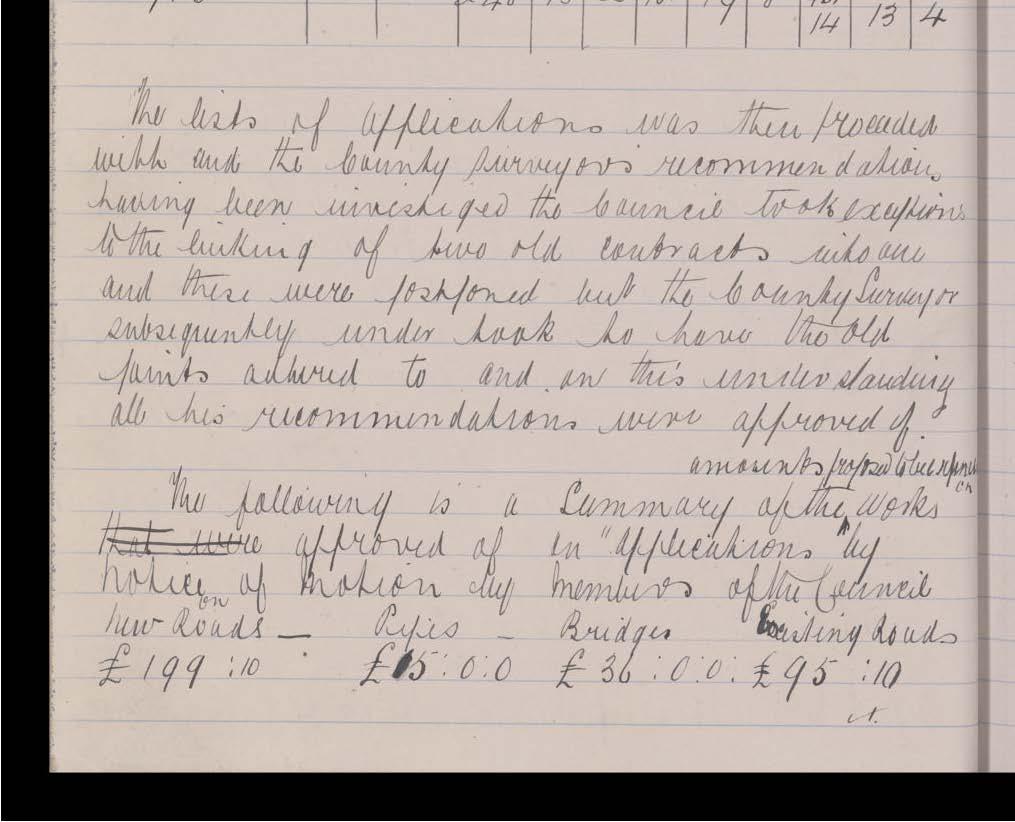 14 13 4
The lists of applications was then proceeded
with and the County Surveyors recommendations
having been investiged the Council took exceptions
to the linking of two old contracts into one
and these were postponed but the County Surveyor
subsequently under took to have the old
points adhered to and on this understanding
all his recommendations were approved of.
amounts proposed to be expended on
The following is a Summary of the works
that were approved of in "Applications" by
notice of motion by members of the Council
on
New Roads — Pipes – Bridges Existing Roads
£199:10 £15:0:0 £36:0:0: £95:10